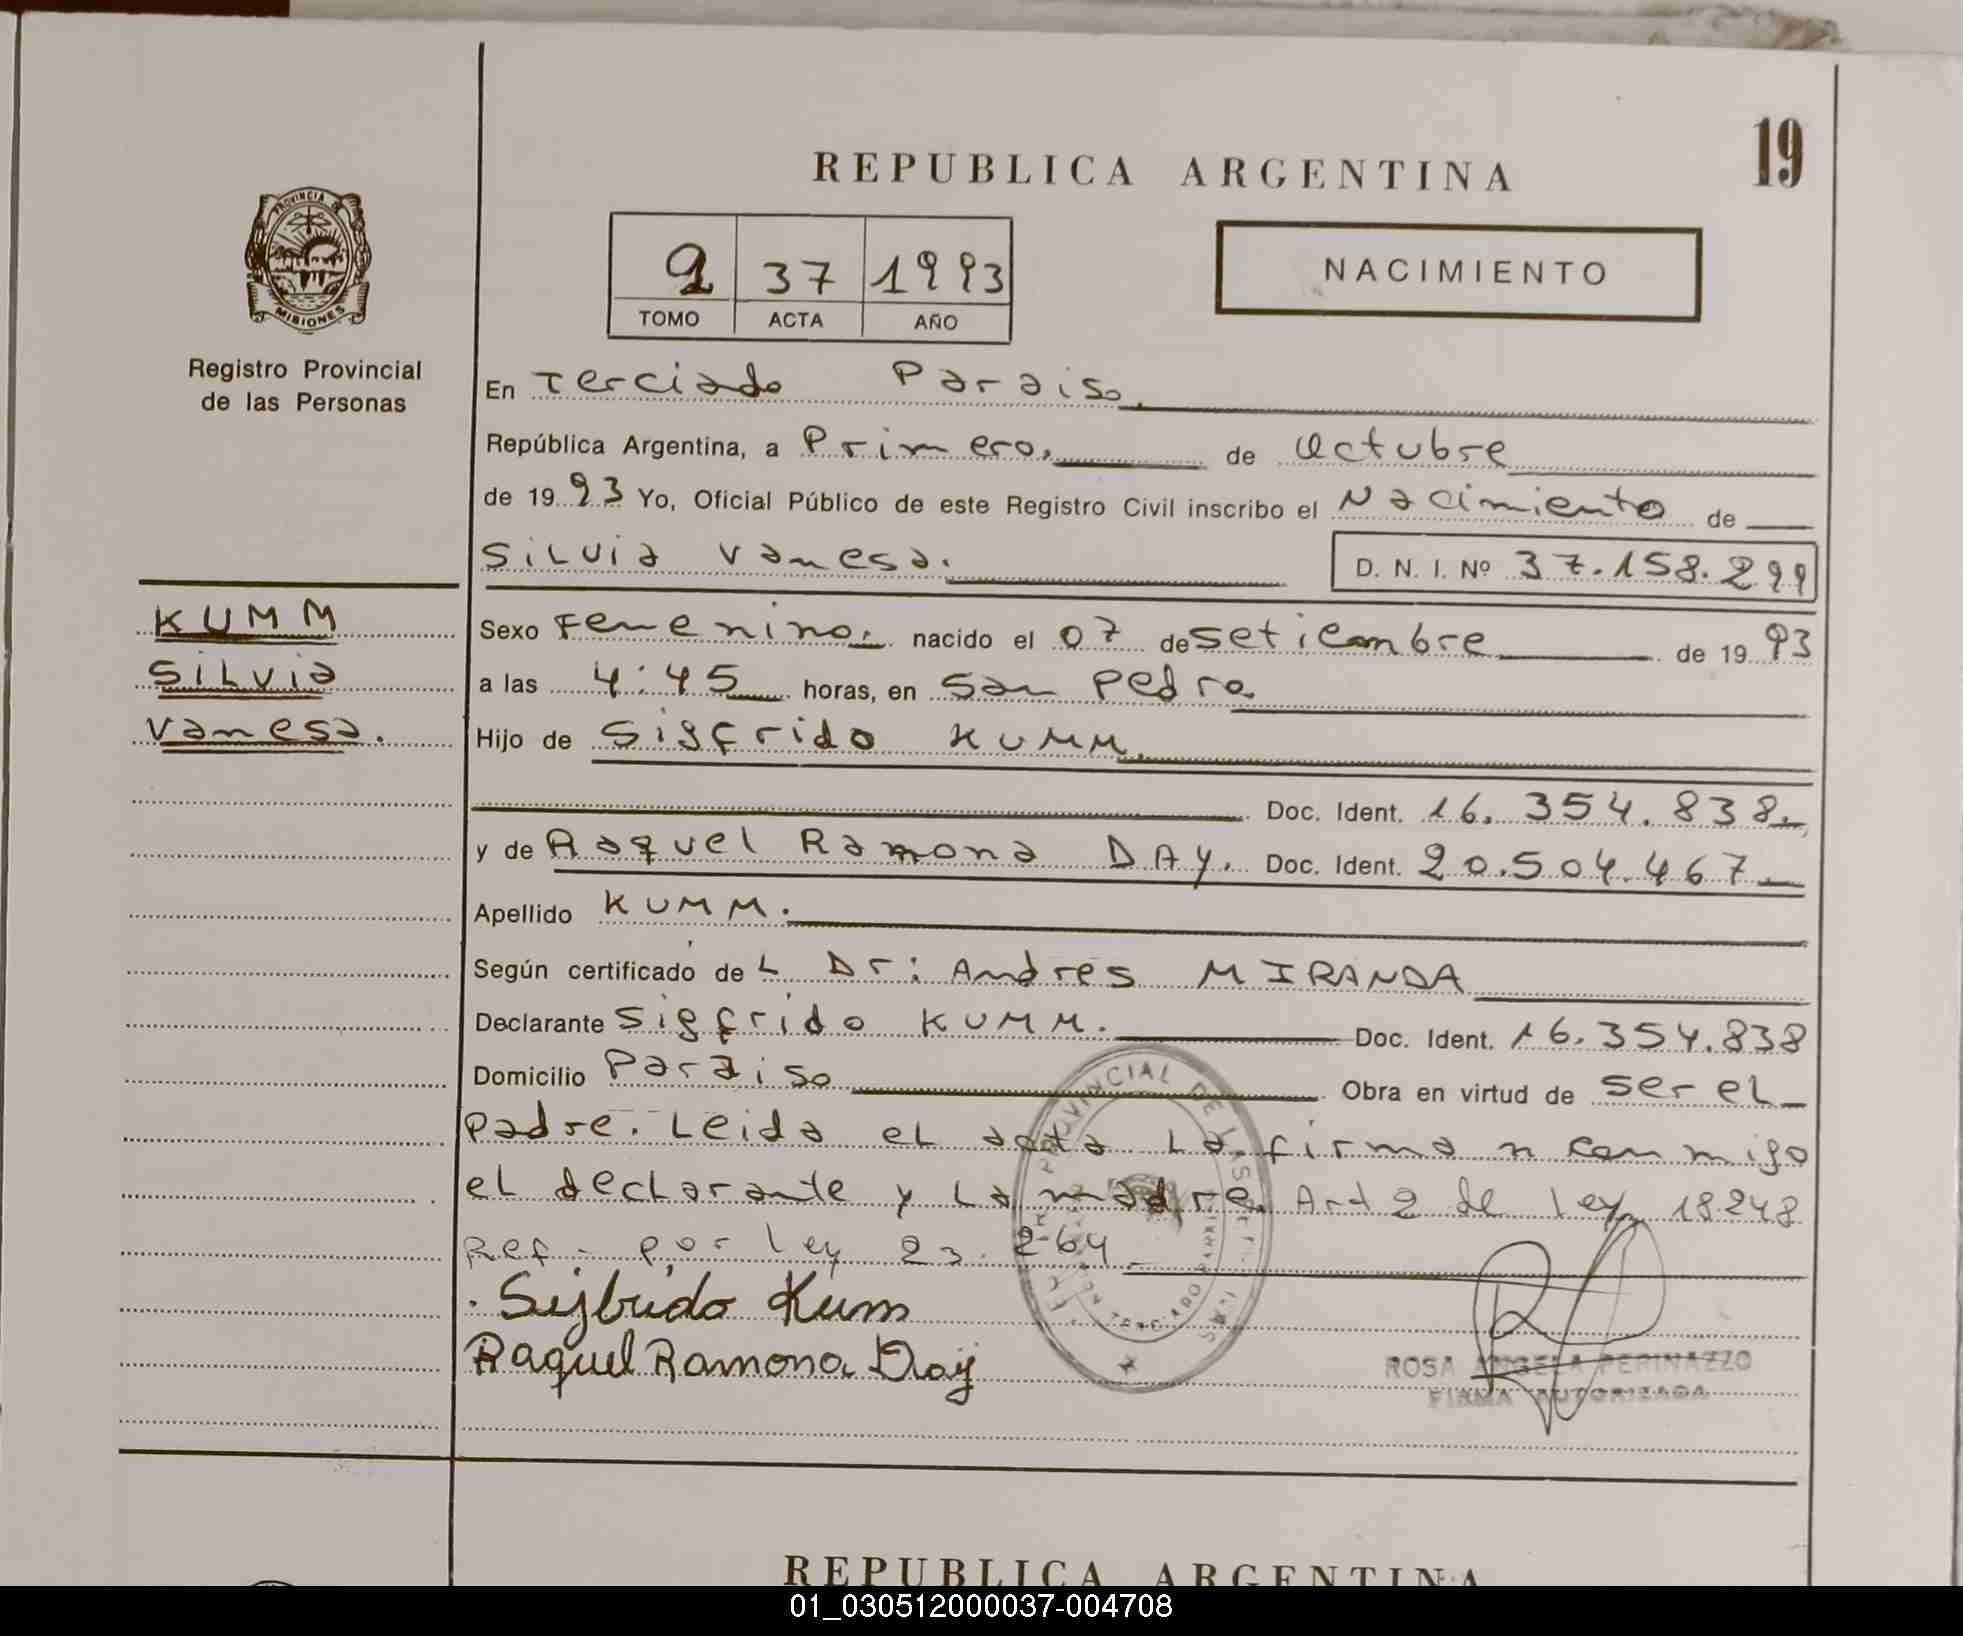 19
REPUBLICA ARGENTINA
PROVINCIA DE
MISIONES
Registro Provincial
de las Personas
2 37 1993
TOMO ACTA AÑO
NACIMIENTO
En Terciado Paraiso.
República Argentina, a Primero, de Octubre
de 1993 Yo, Oficial Público de este Registro Civil inscribo el Nacimiento de
Silvia Vanesa. D. N. I. Nº 37.158.299
KUMM
Silvia
Vanesa.
Sexo Femenino. nacido el 07 de Setiembre de 1993
a las 4:45 horas, en San Pedro
Hijo de Sigfrido KUMM.
Doc. Ident. 16.354.838.
y de Raquel Ramona DAY. Doc. Ident. 20.504.467
Apellido KUMM.
Según certificado del Dr: Andres MIRANDA
Declarante Sigfrido KUMM. Doc. Ident. 16.354.838
Domicilio Paraiso Obra en virtud de ser el
padre. Leida el acta la firma n conmigo
el declarante y la madre. Art 2 de ley 18248
Ref. por ley 23.264
Sijbrido Kum
Raquel Ramona Day
PROVINCIAL DE LAS
ROSA ANGELA PERINAZZO
FIRMA AUTORIZADA
REPUBLICA ARGENTINA
01_030512000037-004708